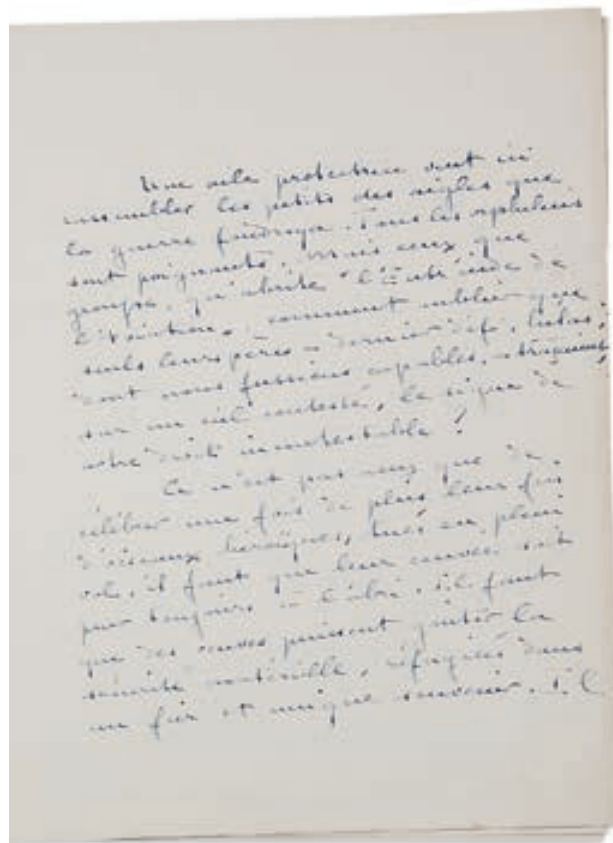 Une aile protectrice vient ici
rassembler les petits des aigles que
la guerre foudroya. Tous les orphelins
sont poignants. Mais ceux que
groupe, qu'abrite "l'Entr'aide de
l'Aviation, comment oublier que
seuls leurs pères – dernier défi, hélas,
dont nous fussions capables, –
sur un ciel contesté, le signe de
notre droit incontestable !
Ce n'est pas que de
célébrer une fois de plus leur fin
d'oiseaux héroïques, tués en plein
vol, il faut que leur couvée soit
pour toujours à l'abri. Il faut
que des veuves puissent goûter la
sécurité matérielle, réfugiées dans
un fier et unique souvenir. Il